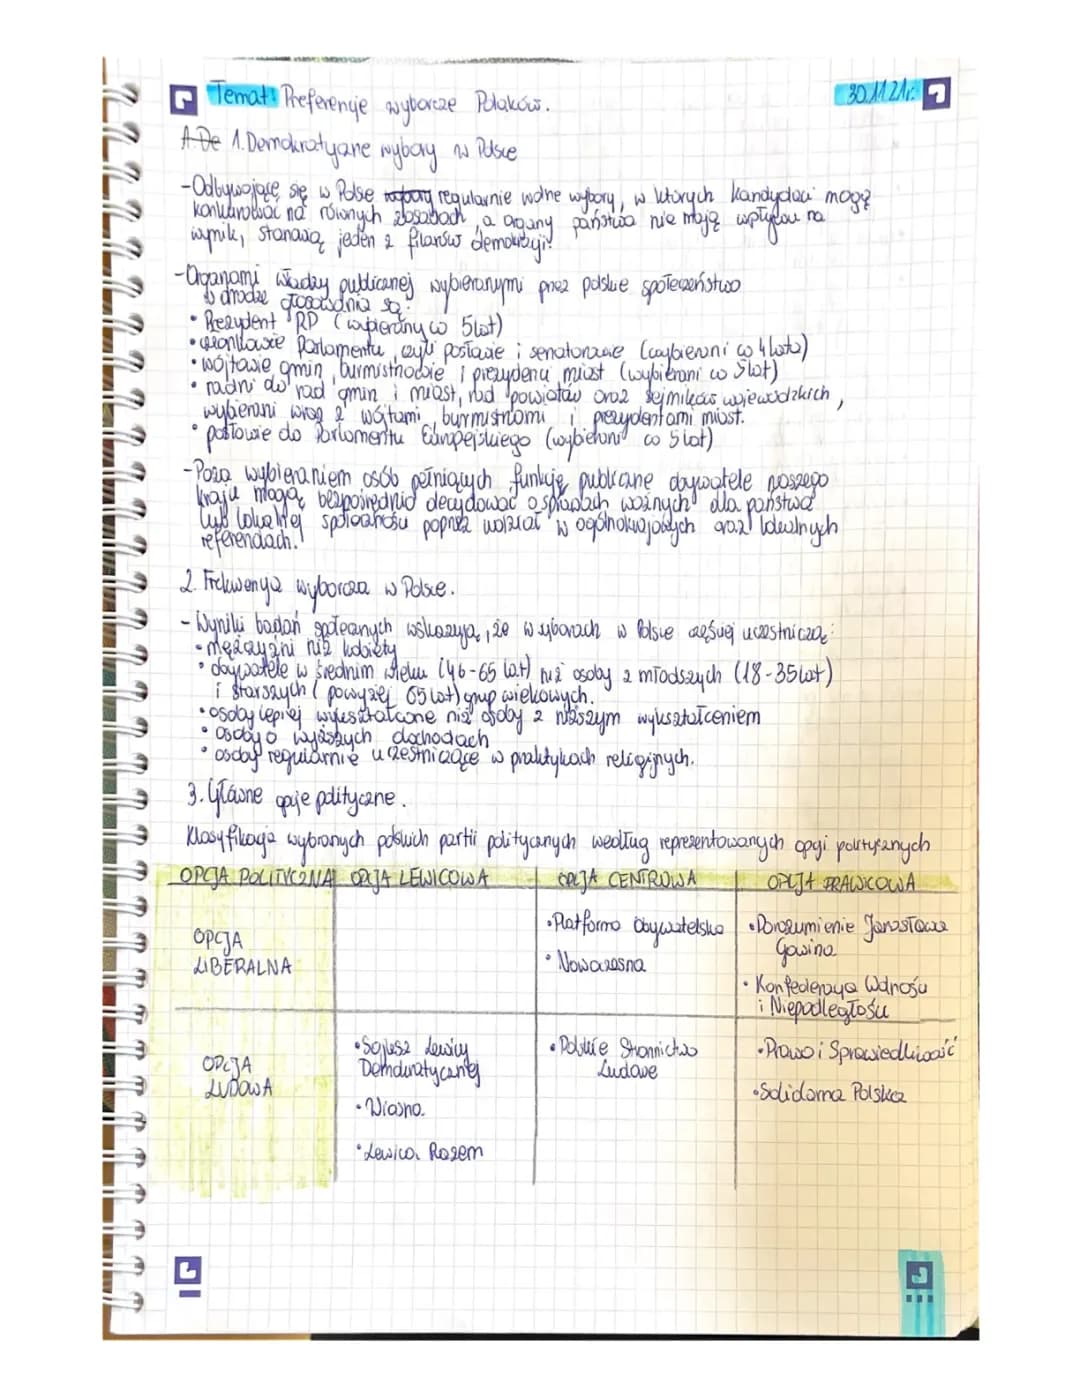 Temat: Preferencje wyborcze Polaków. 30.11.21r.
1. Demokratyczne wybory w Polsce
-Odbywające się w Polsce regularnie wolne wybory, w których kandydaci mogą
konkurować na równych zasadach, a organy państwa nie mają wpływu na
wynik, stanowią jeden z filarów demokracji.
-Organami władzy publicznej wybieranymi przez polskie społeczeństwo
w drodze głosowania są:
• Prezydent RP (wybierany co 5 lat)
• członkowie Parlamentu, czyli posłowie i senatorowie (wybierani co 4 lata)
• wójtowie gmin, burmistrzowie i prezydenci miast (wybierani co 5 lat)
• radni do rad gmin i miast, rad powiatów oraz sejmików wojewódzkich,
wybierani wraz z wójtami, burmistrzami i prezydentami miast.
• posłowie do Parlamentu Europejskiego (wybierani co 5 lat)
-Poza wybieraniem osób pełniących funkcje publiczne obywatele naszego
kraju mogą bezpośrednio decydować o sprawach ważnych dla państwa
lub lokalnej społeczności poprzez udział w ogólnokrajowych oraz lokalnych
referendach.
2. Frekwencja wyborcza w Polsce.
- Wyniki badań społecznych wskazują, że w wyborach w Polsce częściej uczestniczą:
• mężczyźni niż kobiety
• obywatele w średnim wieku (46-65 lat) niż osoby z młodszych (18-35 lat)
i starszych (powyżej 65 lat) grup wiekowych.
• osoby lepiej wykształcone niż osoby z niższym wykształceniem
• osoby o wyższych dochodach
• osoby regularnie uczestniczące w praktykach religijnych.
3. Główne opcje polityczne.
Klasyfikacja wybranych polskich partii politycznych według reprezentowanych opcji politycznych
OPCJA POLITYCZNA OPCJA LEWICOWA OPCJA CENTROWA OPCJA PRAWICOWA
OPCJA
LIBERALNA
• Platforma Obywatelska
• Nowoczesna
• Porozumienie Jarosława
Gowina
• Konfederacja Wolność
i Niepodległość
OPCJA
LUDOWA
• Sojusz Lewicy
Demokratycznej
• Wiosna.
• Lewica Razem
• Polskie Stronnictwo
Ludowe
• Prawo i Sprawiedliwość
• Solidarna Polska